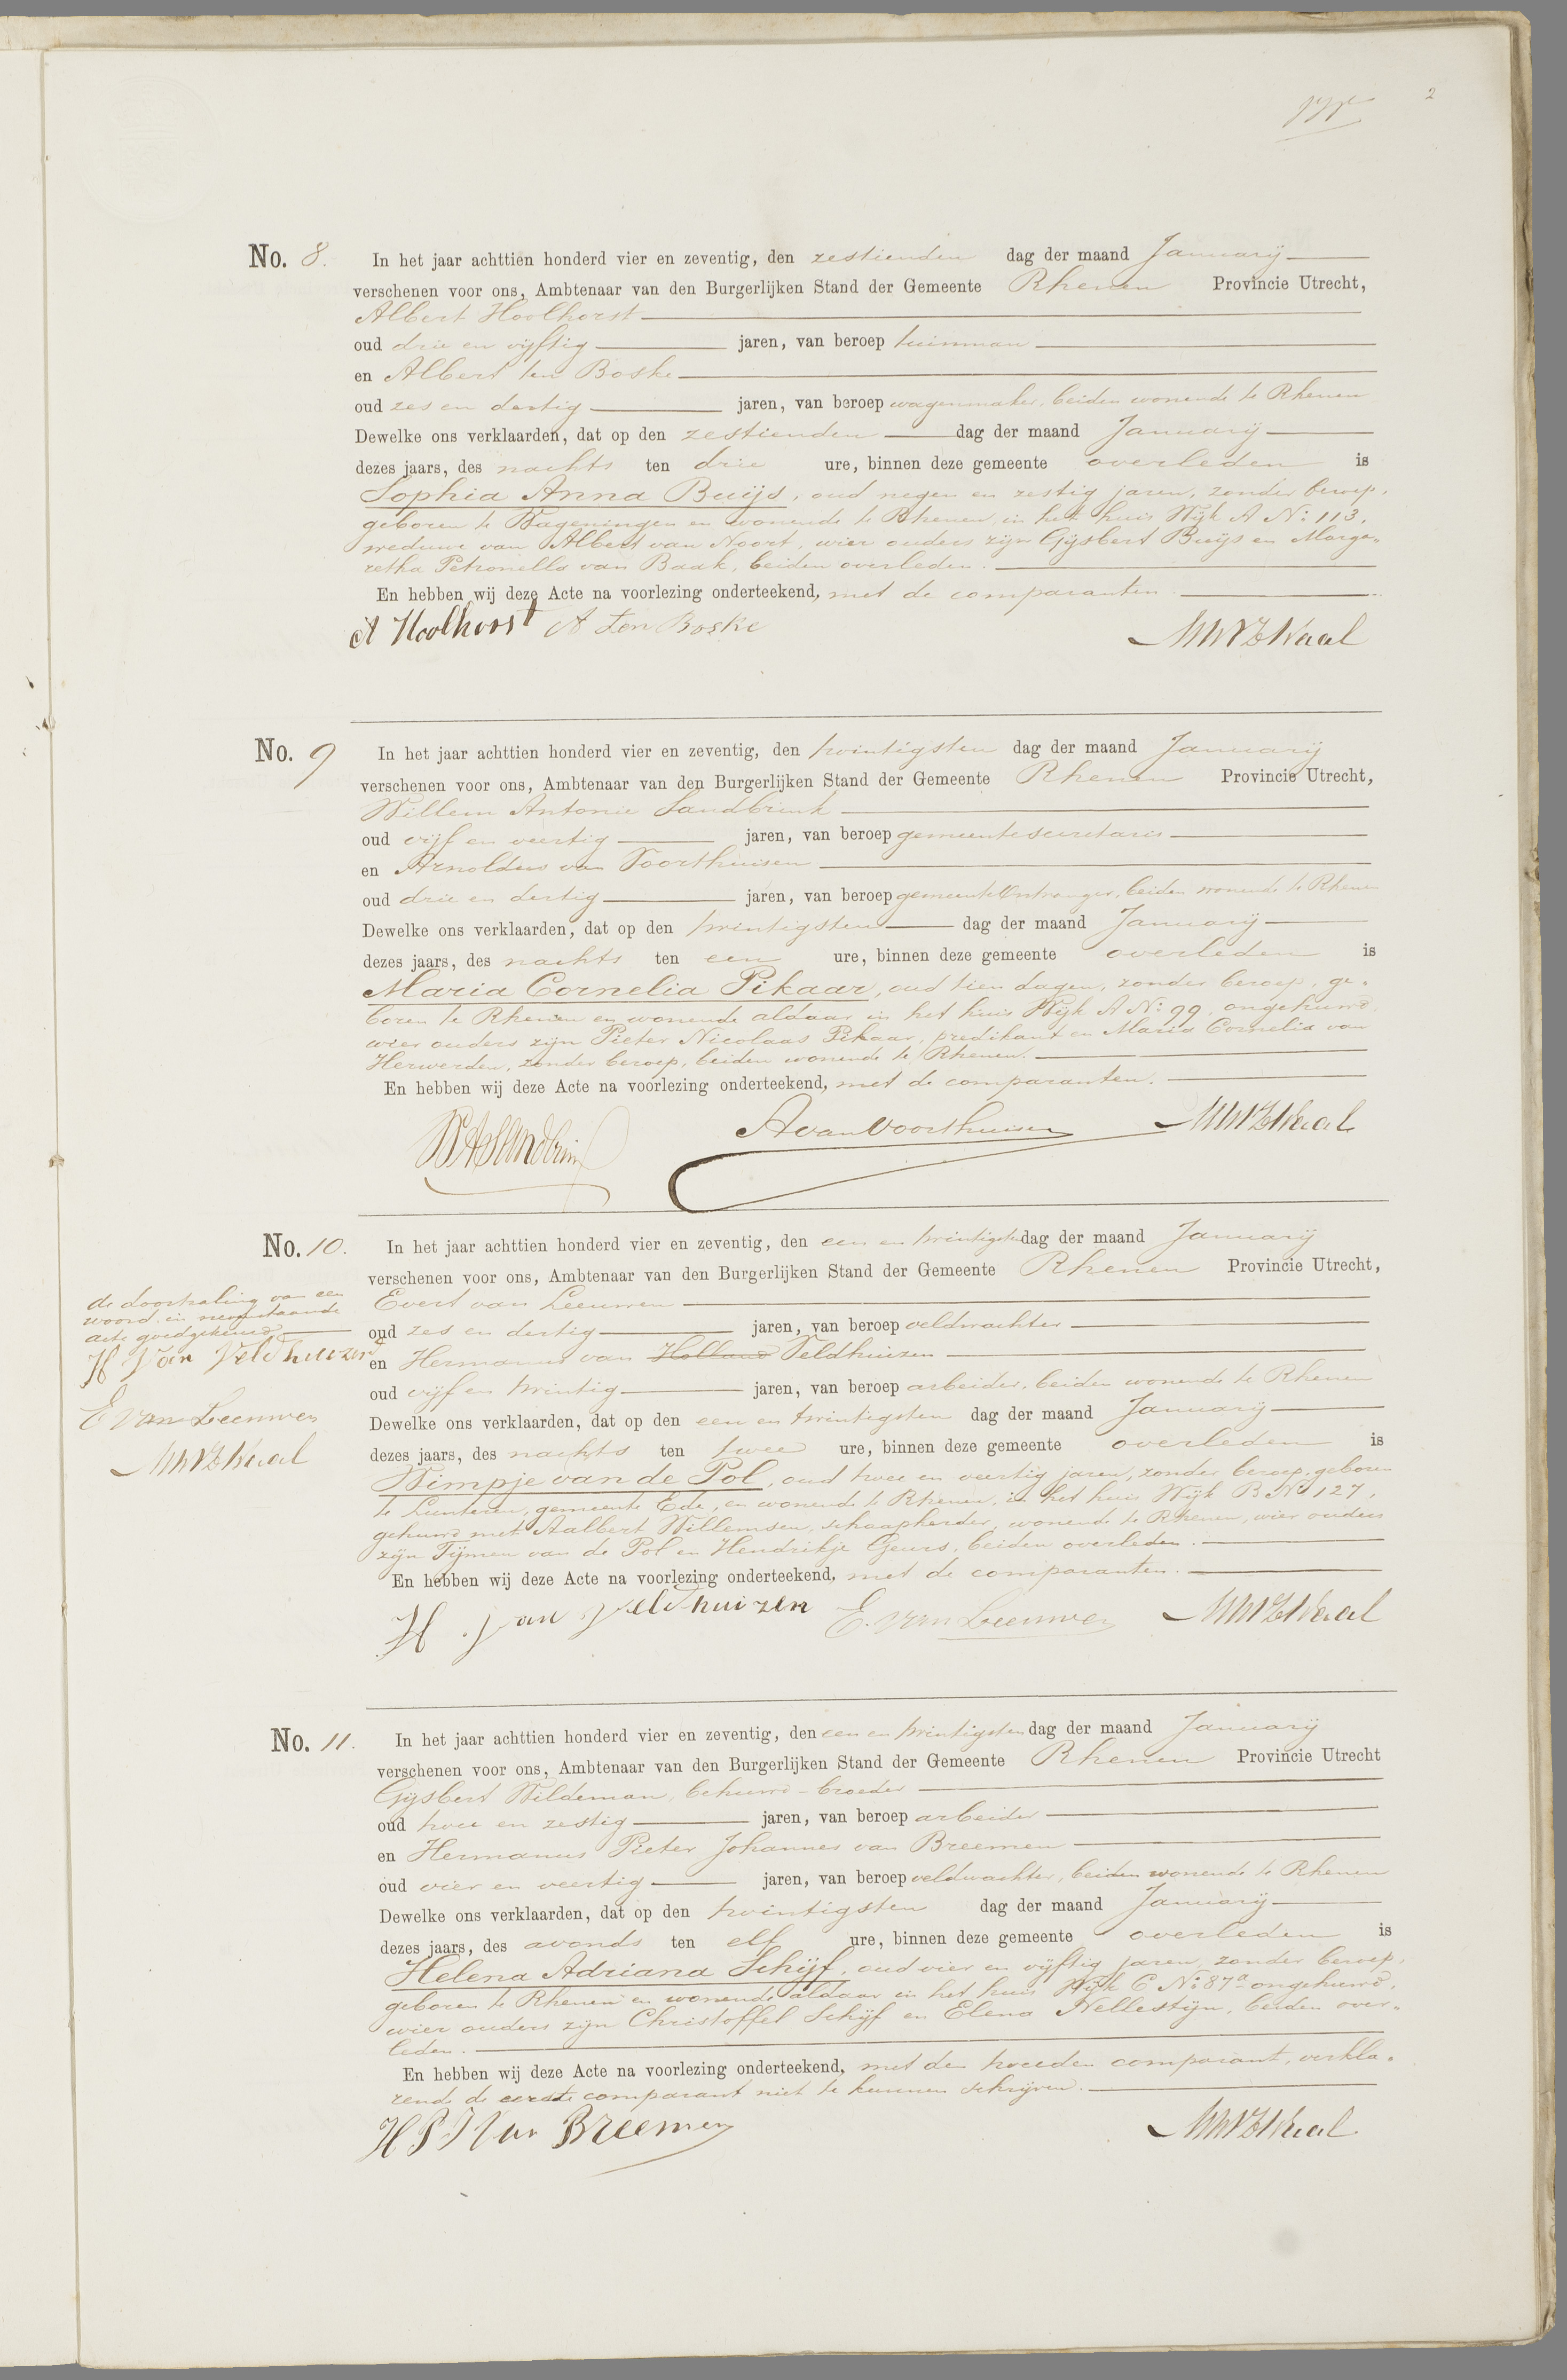 2
No. 8. In het jaar achttien honderd vier en zeventig, den zestienden dag der maand Januarij
verschenen voor ons, Ambtenaar van den Burgerlijken Stand der Gemeente Rhenen Provincie Utrecht,
Albert Hoolhorst
oud drie en vijftig jaren, van beroep tuinman
en Albert ten Boske
oud zes en dertig jaren, van beroep wagenmaker, beiden wonende te Rhenen
Dewelke ons verklaarden, dat op den zestienden dag der maand Januarij
dezes jaars, des nachts ten drie ure, binnen deze gemeente overleden is
Sophia Anna Buijs, oud negen en zestig jaren, zonder beroep,
geboren te Wageningen en wonende te Rhenen, in het huis Wijk A No: 113,
weduwe van Albert van Noort, wier ouders zijn Gijsbert Buijs en Marga-
retha Petronella van Baak, beiden overleden.
En hebben wij deze Acte na voorlezing onderteekend, met de comparanten.
A Hoolhorst A ten Boske
No. 9 In het jaar achttien honderd vier en zeventig, den twintigsten dag der maand Januarij
verschenen voor ons, Ambtenaar van den Burgerlijken Stand der Gemeente Rhenen Provincie Utrecht,
Willem Antonie Sandbrink
oud vijf en veertig jaren, van beroep gemeentesecretaris
en Arnoldus van Voorthuisen
oud drie en dertig jaren, van beroep gemeenteontvanger, beiden wonende te Rhenen
Dewelke ons verklaarden, dat op den twintigsten dag der maand Januarij
dezes jaars, des nachts ten een ure, binnen deze gemeente overleden is
Maria Cornelia Pikaar, oud tien dagen, zonder beroep, ge-
boren te Rhenen en wonende aldaar in het huis Wijk A No: 99, ongehuwd,
wier ouders zijn Pieter Nicolaas Pikaar, predikant en Maria Cornelia van
Herwerden, zonder beroep, beiden wonende te Rhenen.
En hebben wij deze Acte na voorlezing onderteekend, met de comparanten.
WASandbrink A van Voorthuisen
No. 10. In het jaar achttien honderd vier en zeventig, den een en twintigsten dag der maand Januarij
verschenen voor ons, Ambtenaar van den Burgerlijken Stand der Gemeente Rhenen Provincie Utrecht,
Evert van Leeuwen
oud zes en dertig jaren, van beroep veldwachter
en Hermanus van Holland Veldhuizen
oud vijf en twintig jaren, van beroep arbeider, beiden wonende te Rhenen
Dewelke ons verklaarden, dat op den een en twintigsten dag der maand Januarij
dezes jaars, des nachts ten twee ure, binnen deze gemeente overleden is
Wimpje van de Pol, oud twee en veertig jaren, zonder beroep, geboren
te Lunteren, gemeente Ede, en wonende te Rhenen, in het huis Wijk B No 127,
gehuwd met Aalbert Willemsen, schaapherder, wonende te Rhenen, wier ouders
zijn Tijmen van de Pol en Hendrikje Geurs, beiden overleden.
En hebben wij deze Acte na voorlezing onderteekend, met de comparanten.
H van Veldhuizen E. van Leeuwen
de doorhaling van een
woord in nevenstaande
acte goedgekeurd
H van Veldhuizen
E van Leeuwen
No. 11. In het jaar achttien honderd vier en zeventig, den een en twintigsten dag der maand Januarij
verschenen voor ons, Ambtenaar van den Burgerlijken Stand der Gemeente Rhenen Provincie Utrecht
Gijsbert Wildeman, behuwd-broeder
oud twee en zestig jaren, van beroep arbeider
en Hermanus Pieter Johannes van Breemen
oud vier en veertig jaren, van beroep veldwachter, beiden wonende te Rhenen
Dewelke ons verklaarden, dat op den twintigsten dag der maand Januarij
dezes jaars, des avonds ten elf ure, binnen deze gemeente overleden is
Helena Adriana Schijf, oud vier en vijftig jaren, zonder beroep,
geboren te Rhenen en wonende aldaar in het huis Wijk C No: 87a ongehuwd,
wier ouders zijn Christoffel Schijf en Elena Nellestijn, beiden over-
leden.
En hebben wij deze Acte na voorlezing onderteekend, met den tweeden comparant, verkla-
rende de eerste comparant niet te kunnen schrijven.
HPJ van Breemen